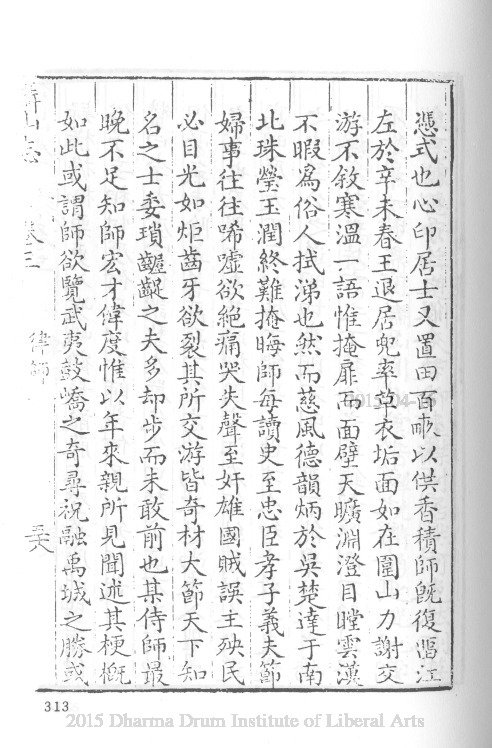 憑式也心印居士又置田百畝以供香積師旣復畱江
左於辛未春王退居兜率草衣垢面如在圍山力謝交
游不敘寒溫一語惟掩扉而面壁天曠淵澄目瞠雲漢
不暇爲俗人拭涕也然而慈風德韻炳於吳楚達于南
北珠瑩玉潤終難掩晦師每讀史至忠臣孝子義夫節
婦事往往唏噓欲絕痛哭失聲至奸雄國賊誤主殃民
必目光如炬齒牙欲裂其所交游皆奇材大節天下知
名之士委瑣齷齪之夫多却步而未敢前也某侍師最
晚不足知師宏才偉度惟以年來親所見聞述其梗槪
如此或謂師欲覽武夷鼓嶠之奇尋祝融禹城之勝或
山志
卷三
律師
313
2015 Dharma Drum Institute of Liberal Arts